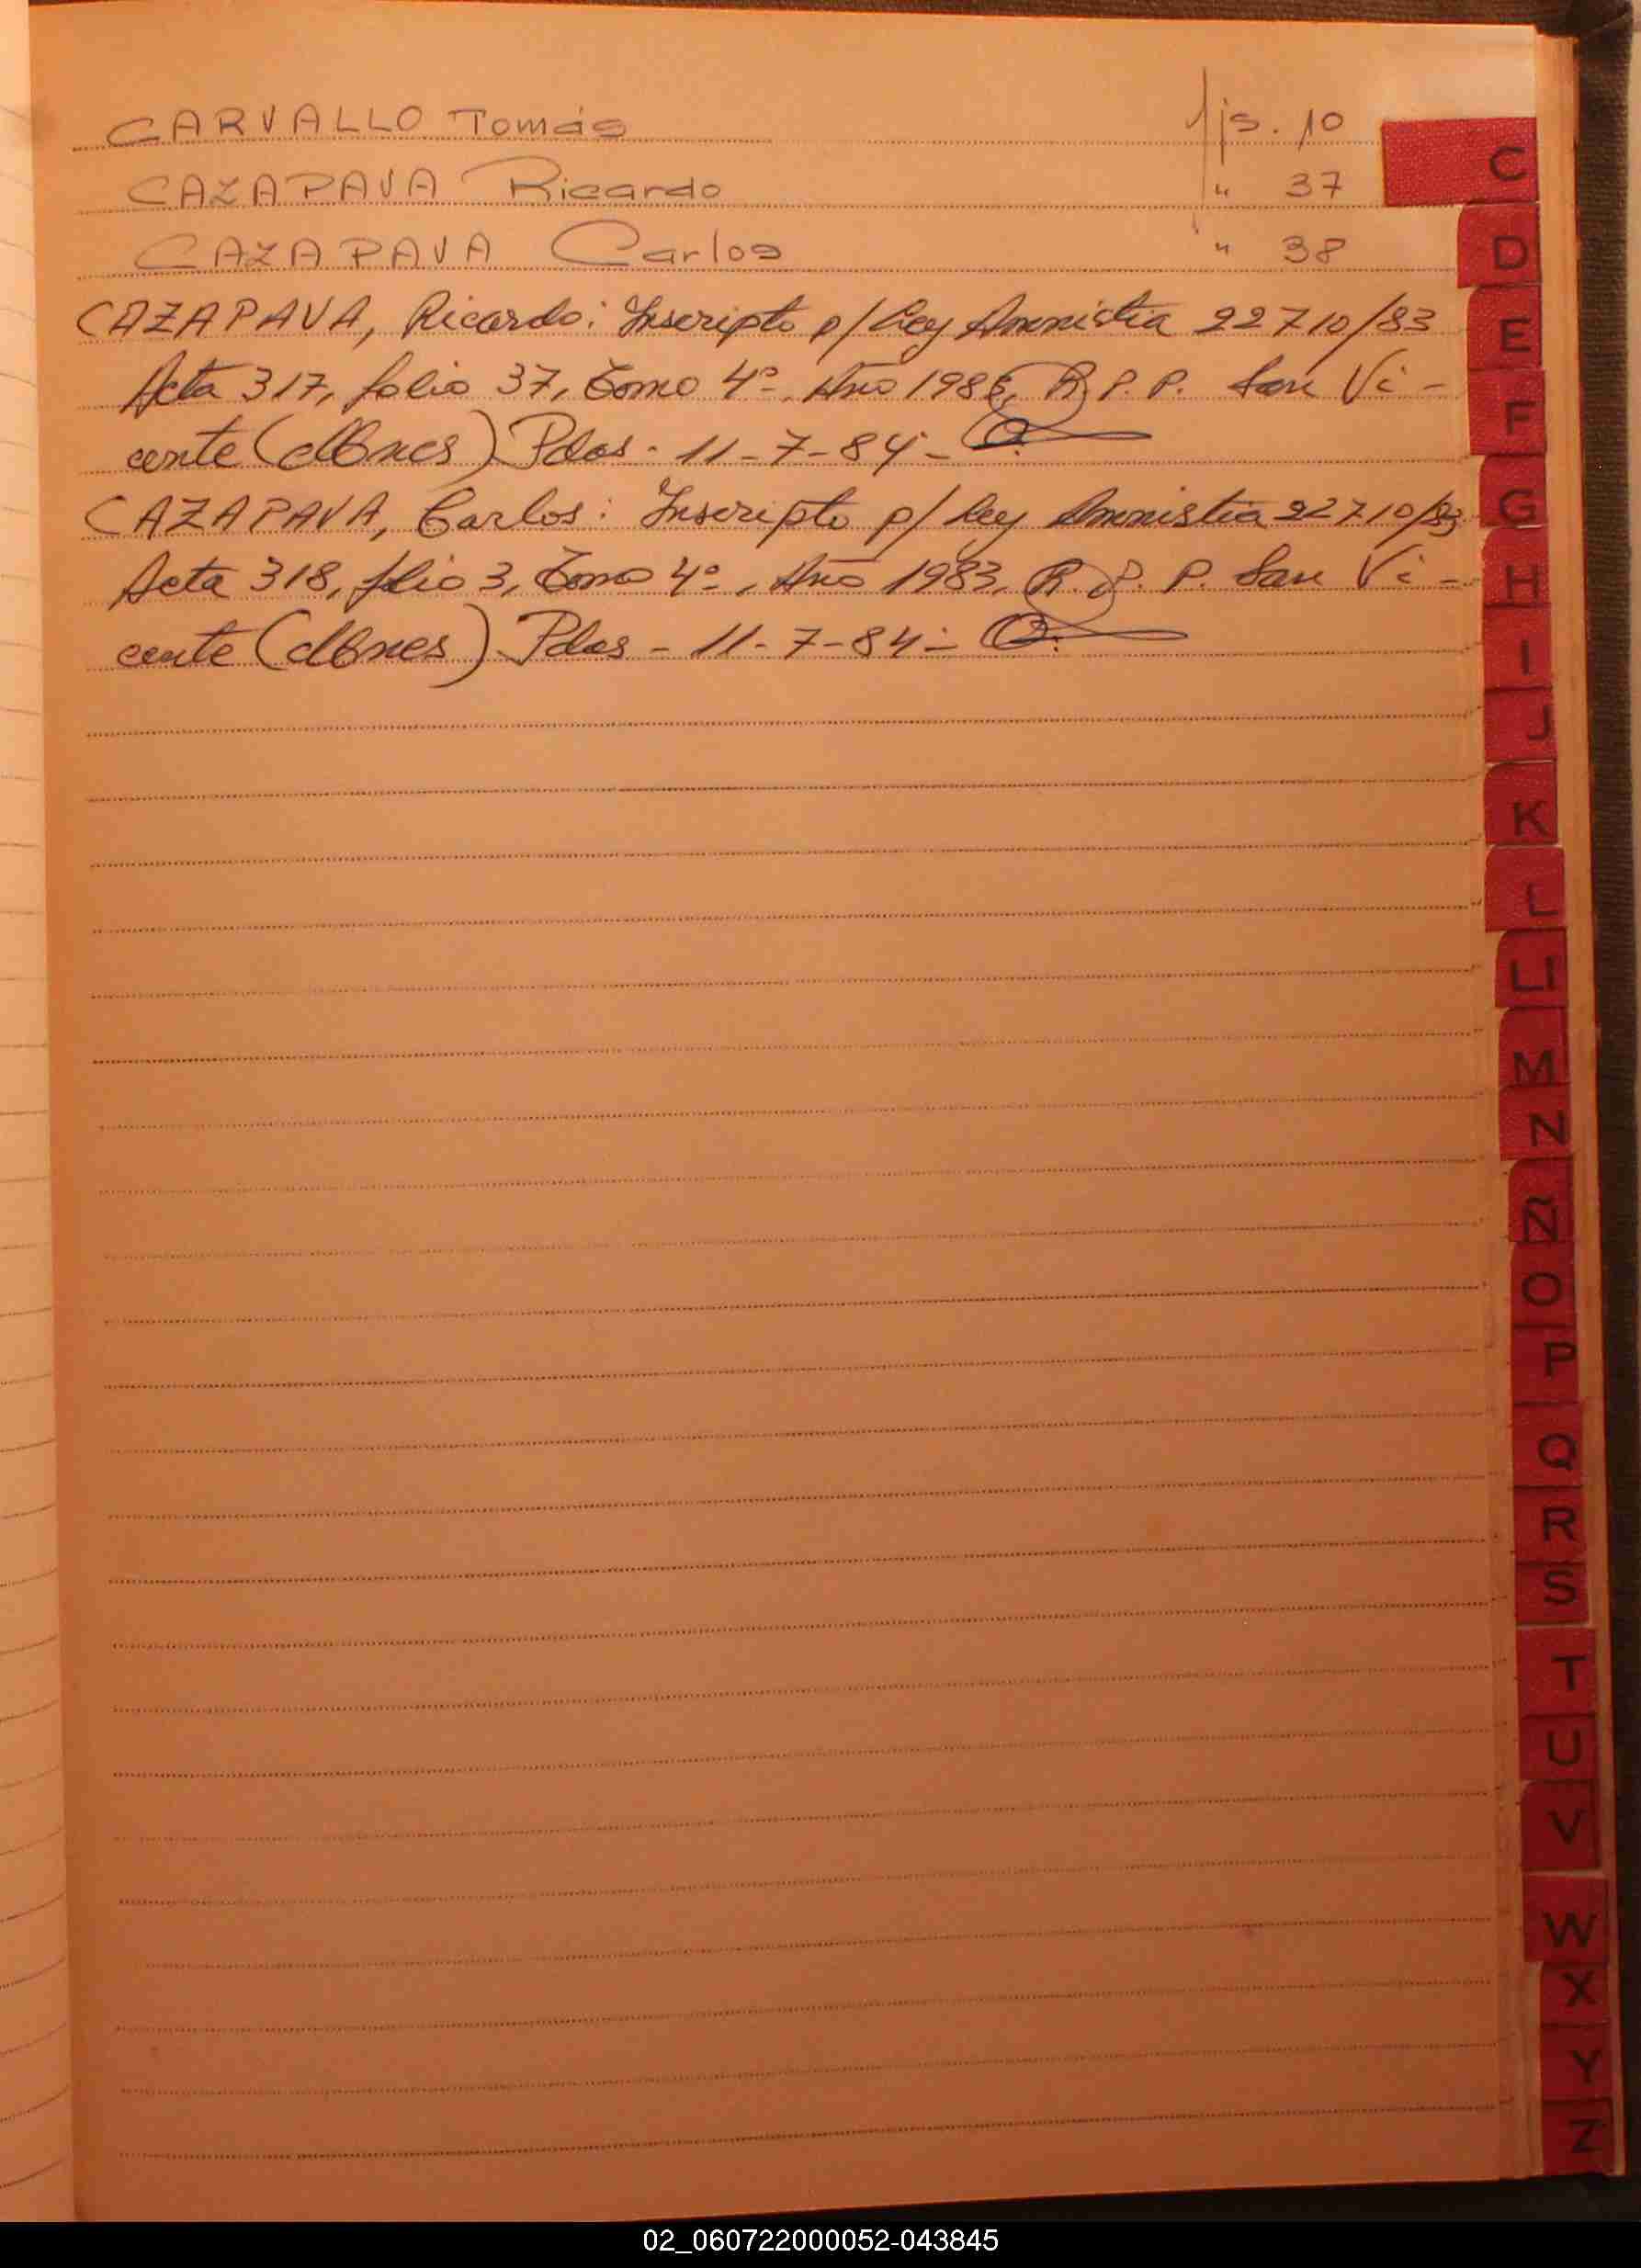 CARVALLO Tomás fjs. 10
CAZAPAVA Ricardo " 37
CAZAPAVA Carlos " 38
CAZAPAVA, Ricardo: Inscripto p/ Ley Amnistia 22710/83
Acta 317, folio 37, Tomo 4º, Año 1983, R. P. P. San Vi-
cente (Mnes) Pdas - 11-7-84-
CAZAPAVA, Carlos: Inscripto p/ Ley Amnistia 22710/83
Acta 318, folio 3, Tomo 4º, Año 1983, R. P. P. San Vi-
cente (Mnes) Pdas - 11-7-84-
C
D
E
F
G
H
I
J
K
L
Ll
M
N
Ñ
O
P
Q
R
S
T
U
V
W
X
Y
Z
02_060722000052-043845